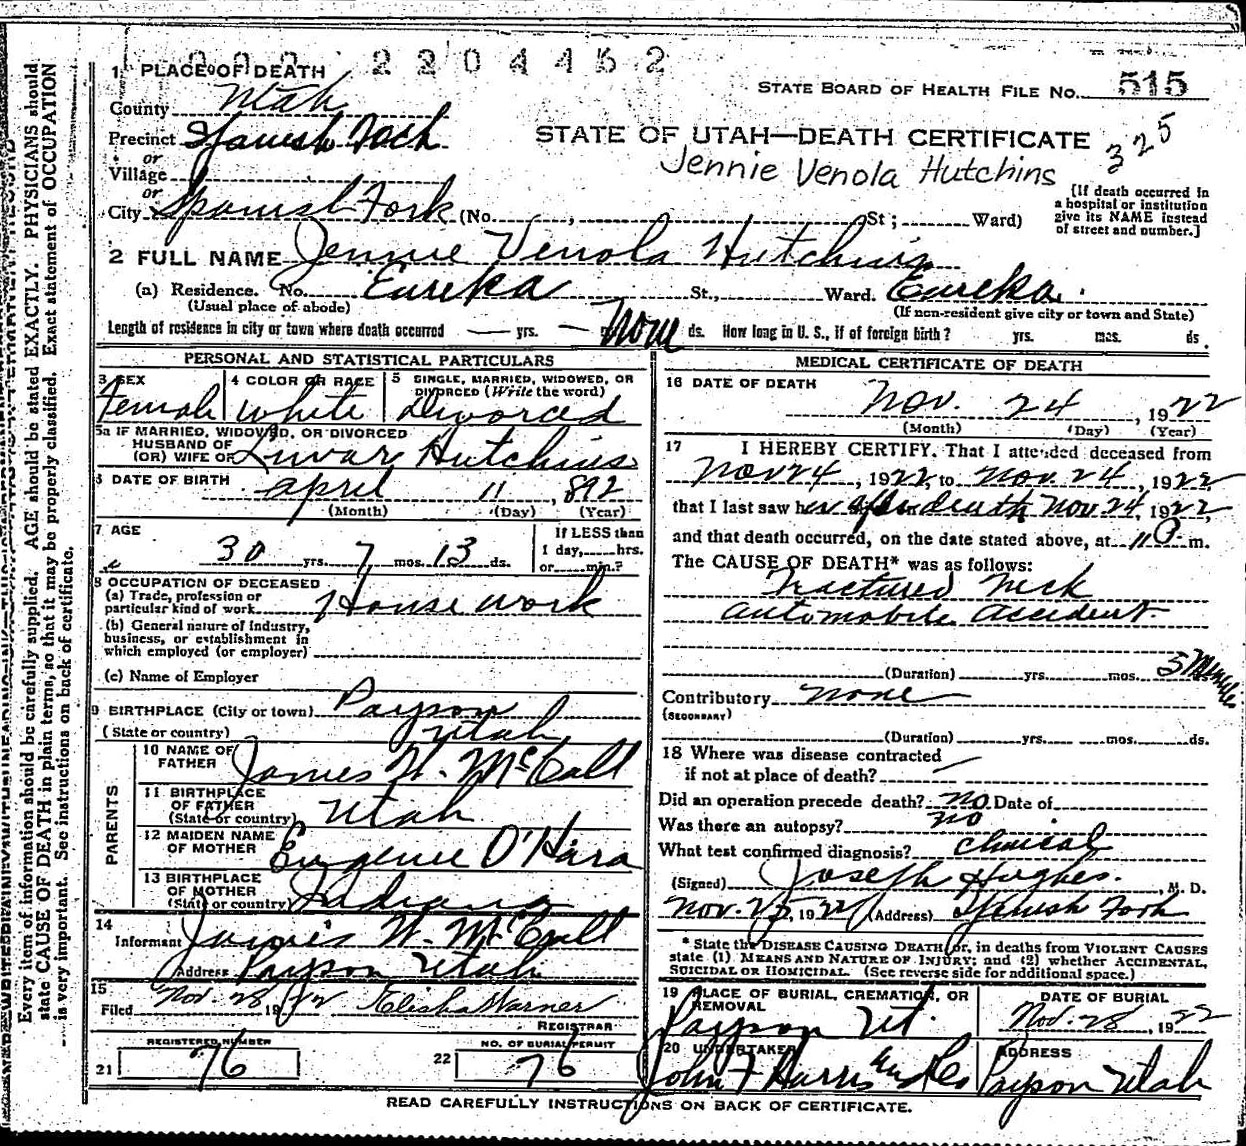 2204452
1 PLACE OF DEATH
STATE BOARD OF HEALTH FILE No. 515
County Utah
Precinct Spanish Fork
STATE OF UTAH—DEATH CERTIFICATE
325
or
Village
Jennie Venola Hutchins
or
City Spanish Fork (No. , St ; Ward)
[If death occurred in
a hospital or institution
give its NAME instead
of street and number.]
2 FULL NAME Jennie Venola Hutchins
(a) Residence. No. Eureka St., Ward. Eureka.
(Usual place of abode)
(If non-resident give city or town and State)
Length of residence in city or town where death occurred — yrs. — None ds. How long in U. S., if of foreign birth? yrs. mos. ds.
PERSONAL AND STATISTICAL PARTICULARS
3 SEX
Female
4 COLOR OR RACE
White
5 SINGLE, MARRIED, WIDOWED, OR
DIVORCED (Write the word)
Divorced
5a IF MARRIED, WIDOWED, OR DIVORCED
HUSBAND OF
(OR) WIFE OF Hutchins
6 DATE OF BIRTH April 11, 892
(Month) (Day) (Year)
7 AGE
30 yrs. 7 mos. 13 ds.
If LESS than
1 day, hrs.
or min.?
8 OCCUPATION OF DECEASED
(a) Trade, profession or
particular kind of work House work
(b) General nature of industry,
business, or establishment in
which employed (or employer)
(c) Name of Employer
9 BIRTHPLACE (City or town) Payson
(State or country) Utah
PARENTS
10 NAME OF
FATHER James W. McCall
11 BIRTHPLACE
OF FATHER
(State or country) Utah
12 MAIDEN NAME
OF MOTHER Eugenie O'Hara
13 BIRTHPLACE
OF MOTHER
(State or country) Indiana
14
Informant James W. McCall
Address Payson Utah
15
Filed Nov. 28 1922 Elisha Warner
REGISTRAR
REGISTERED NUMBER
21 76
NO. OF BURIAL PERMIT
22 76
MEDICAL CERTIFICATE OF DEATH
16 DATE OF DEATH
Nov. 24, 1922
(Month) (Day) (Year)
17 I HEREBY CERTIFY, That I attended deceased from
Nov 24, 1922, to Nov. 24, 1922,
that I last saw her after death Nov 24, 1922,
and that death occurred, on the date stated above, at 11 P. m.
The CAUSE OF DEATH* was as follows:
Fractured Neck
Automobile Accident
(Duration) yrs. mos. 5
Contributory none
(SECONDARY)
(Duration) yrs. mos. ds.
18 Where was disease contracted
if not at place of death? —
Did an operation precede death? no Date of
Was there an autopsy? no
What test confirmed diagnosis? Clinical
(Signed) Joseph Hughes. , M. D.
Nov. 25, 1922 (Address) Spanish Fork
* State the DISEASE CAUSING DEATH or, in deaths from VIOLENT CAUSES
state (1) MEANS AND NATURE OF INJURY; and (2) whether ACCIDENTAL,
SUICIDAL OR HOMICIDAL. (See reverse side for additional space.)
19 PLACE OF BURIAL, CREMATION, OR
REMOVAL
Payson Ut.
DATE OF BURIAL
Nov. 28, 1922
20 UNDERTAKER
John F Harris Und Co
ADDRESS
Payson Utah
READ CAREFULLY INSTRUCTIONS ON BACK OF CERTIFICATE.
Every item of information should be carefully supplied. AGE should be stated EXACTLY. PHYSICIANS should
state CAUSE OF DEATH in plain terms, so that it may be properly classified. Exact statement of OCCUPATION
is very important. See instructions on back of certificate.